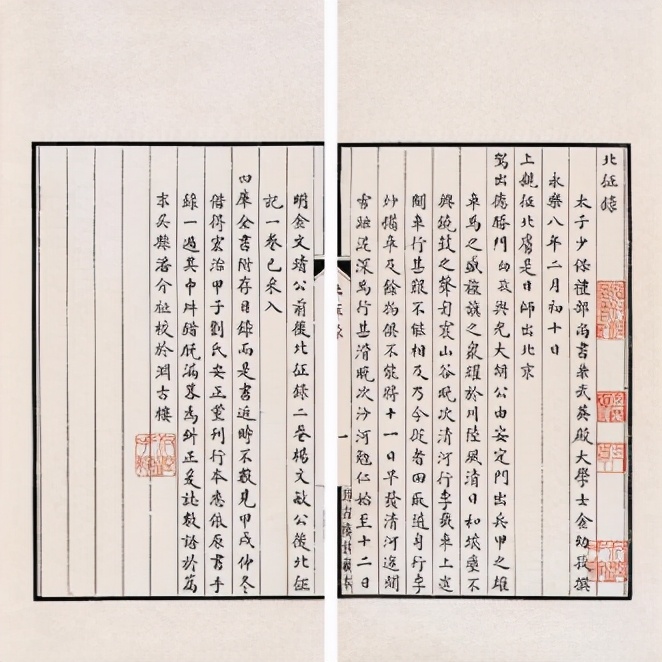 北征錄
太子少保禮部尚書兼武英殿大學士金幼孜撰
永樂八年二月初十日
上親征北虜是日師出北京
駕出德勝門幼孜與光大胡公由安定門出兵甲之雄
車馬之盛旌旗之衆耀於川陸風清日和埃塵不
興鐃鼓之聲訇震山谷晚次清河行李發車上途
間車行甚艱不能相及乃令從者回取隨身行李
抄攜年及餘物俱不能得十一日早發清河途間
雪融泥深馬行甚滑晚次沙河勉仁始至十二日
明金文靖公前後北征錄二卷楊文敏公後北征
記一卷已采入
四庫全書附存目錄而是書近時不數見甲戌仲冬
借得宏治甲子劉氏安正堂刊行本悉依原書手
錄一過其中舛錯脫漏畧為糾正爰誌數語於篇
末吳縣潘介祉校於淵古樓